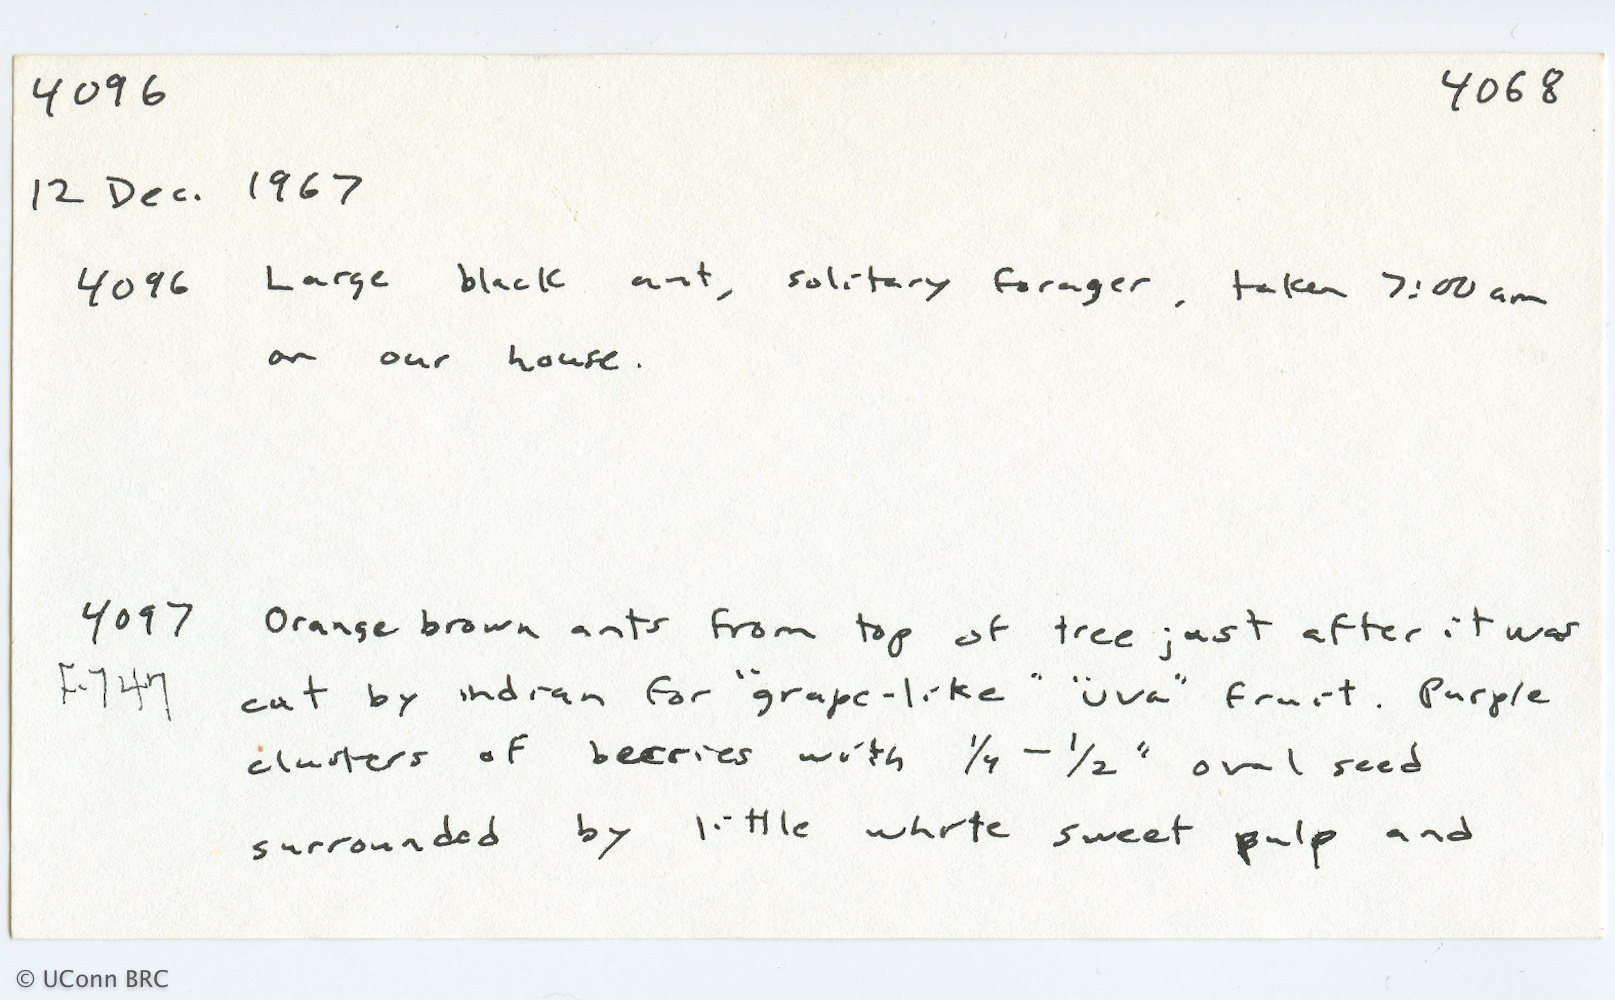 4096 4068
12 Dec. 1967
4096 Large black ant, solitary forager, taken 7:00 am
on our house.
4097 Orange brown ants from top of tree just after it was
F-747 cut by indian for "grape-like" "uva" fruit. Purple
clusters of berries with 1/4 - 1/2" oval seed
surrounded by little white sweet pulp and
© UConn BRC